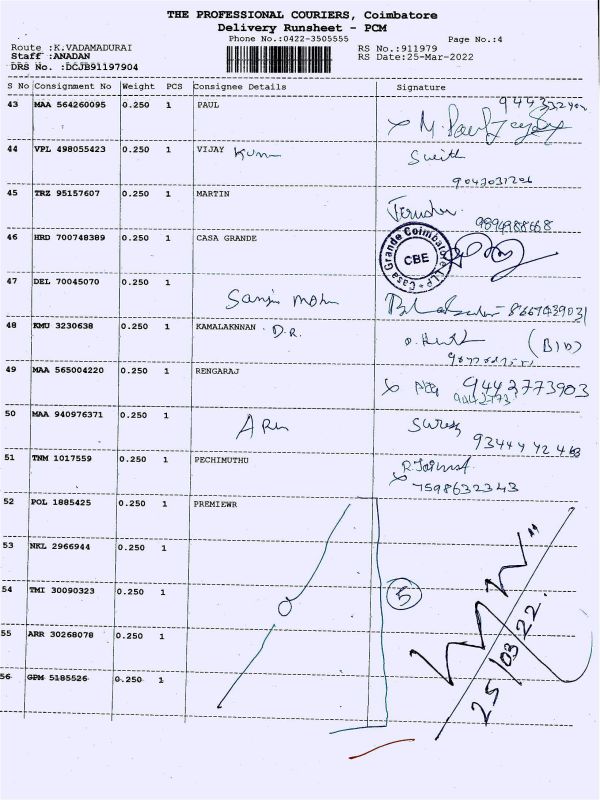 THE PROFESSIONAL COURIERS, Coimbatore
Delivery Runsheet - PCM
Phone No.:0422-3505555
Page No.:4
Route :K.VADAMADURAI
RS No.:911979
Staff :ANADAN
RS Date:25-Mar-2022
DRS No. :DCJB91197904
S No Consignment No Weight PCS Consignee Details Signature
43 MAA 564260095 0.250 1 PAUL
44 VPL 498055423 0.250 1 VIJAY
45 TRZ 95157607 0.250 1 MARTIN
9894988668
46 HRD 700748389 0.250 1 CASA GRANDE
Casa Grande Coimbatore LLP
CBE
47 DEL 70045070 0.250 1
48 KMU 3230638 0.250 1 KAMALAKNNAN D.R.
49 MAA 565004220 0.250 1 RENGARAJ 9442773903
50 MAA 940976371 0.250 1 Suresh
51 TNM 1017559 0.250 1 PECHIMUTHU
7598632343
52 POL 1885425 0.250 1 PREMIEWR
53 NKL 2966944 0.250 1
54 TMI 30090323 0.250 1 5
55 ARR 30268078 0.250 1
56 GPM 5185526 0.250 1
25/03/22